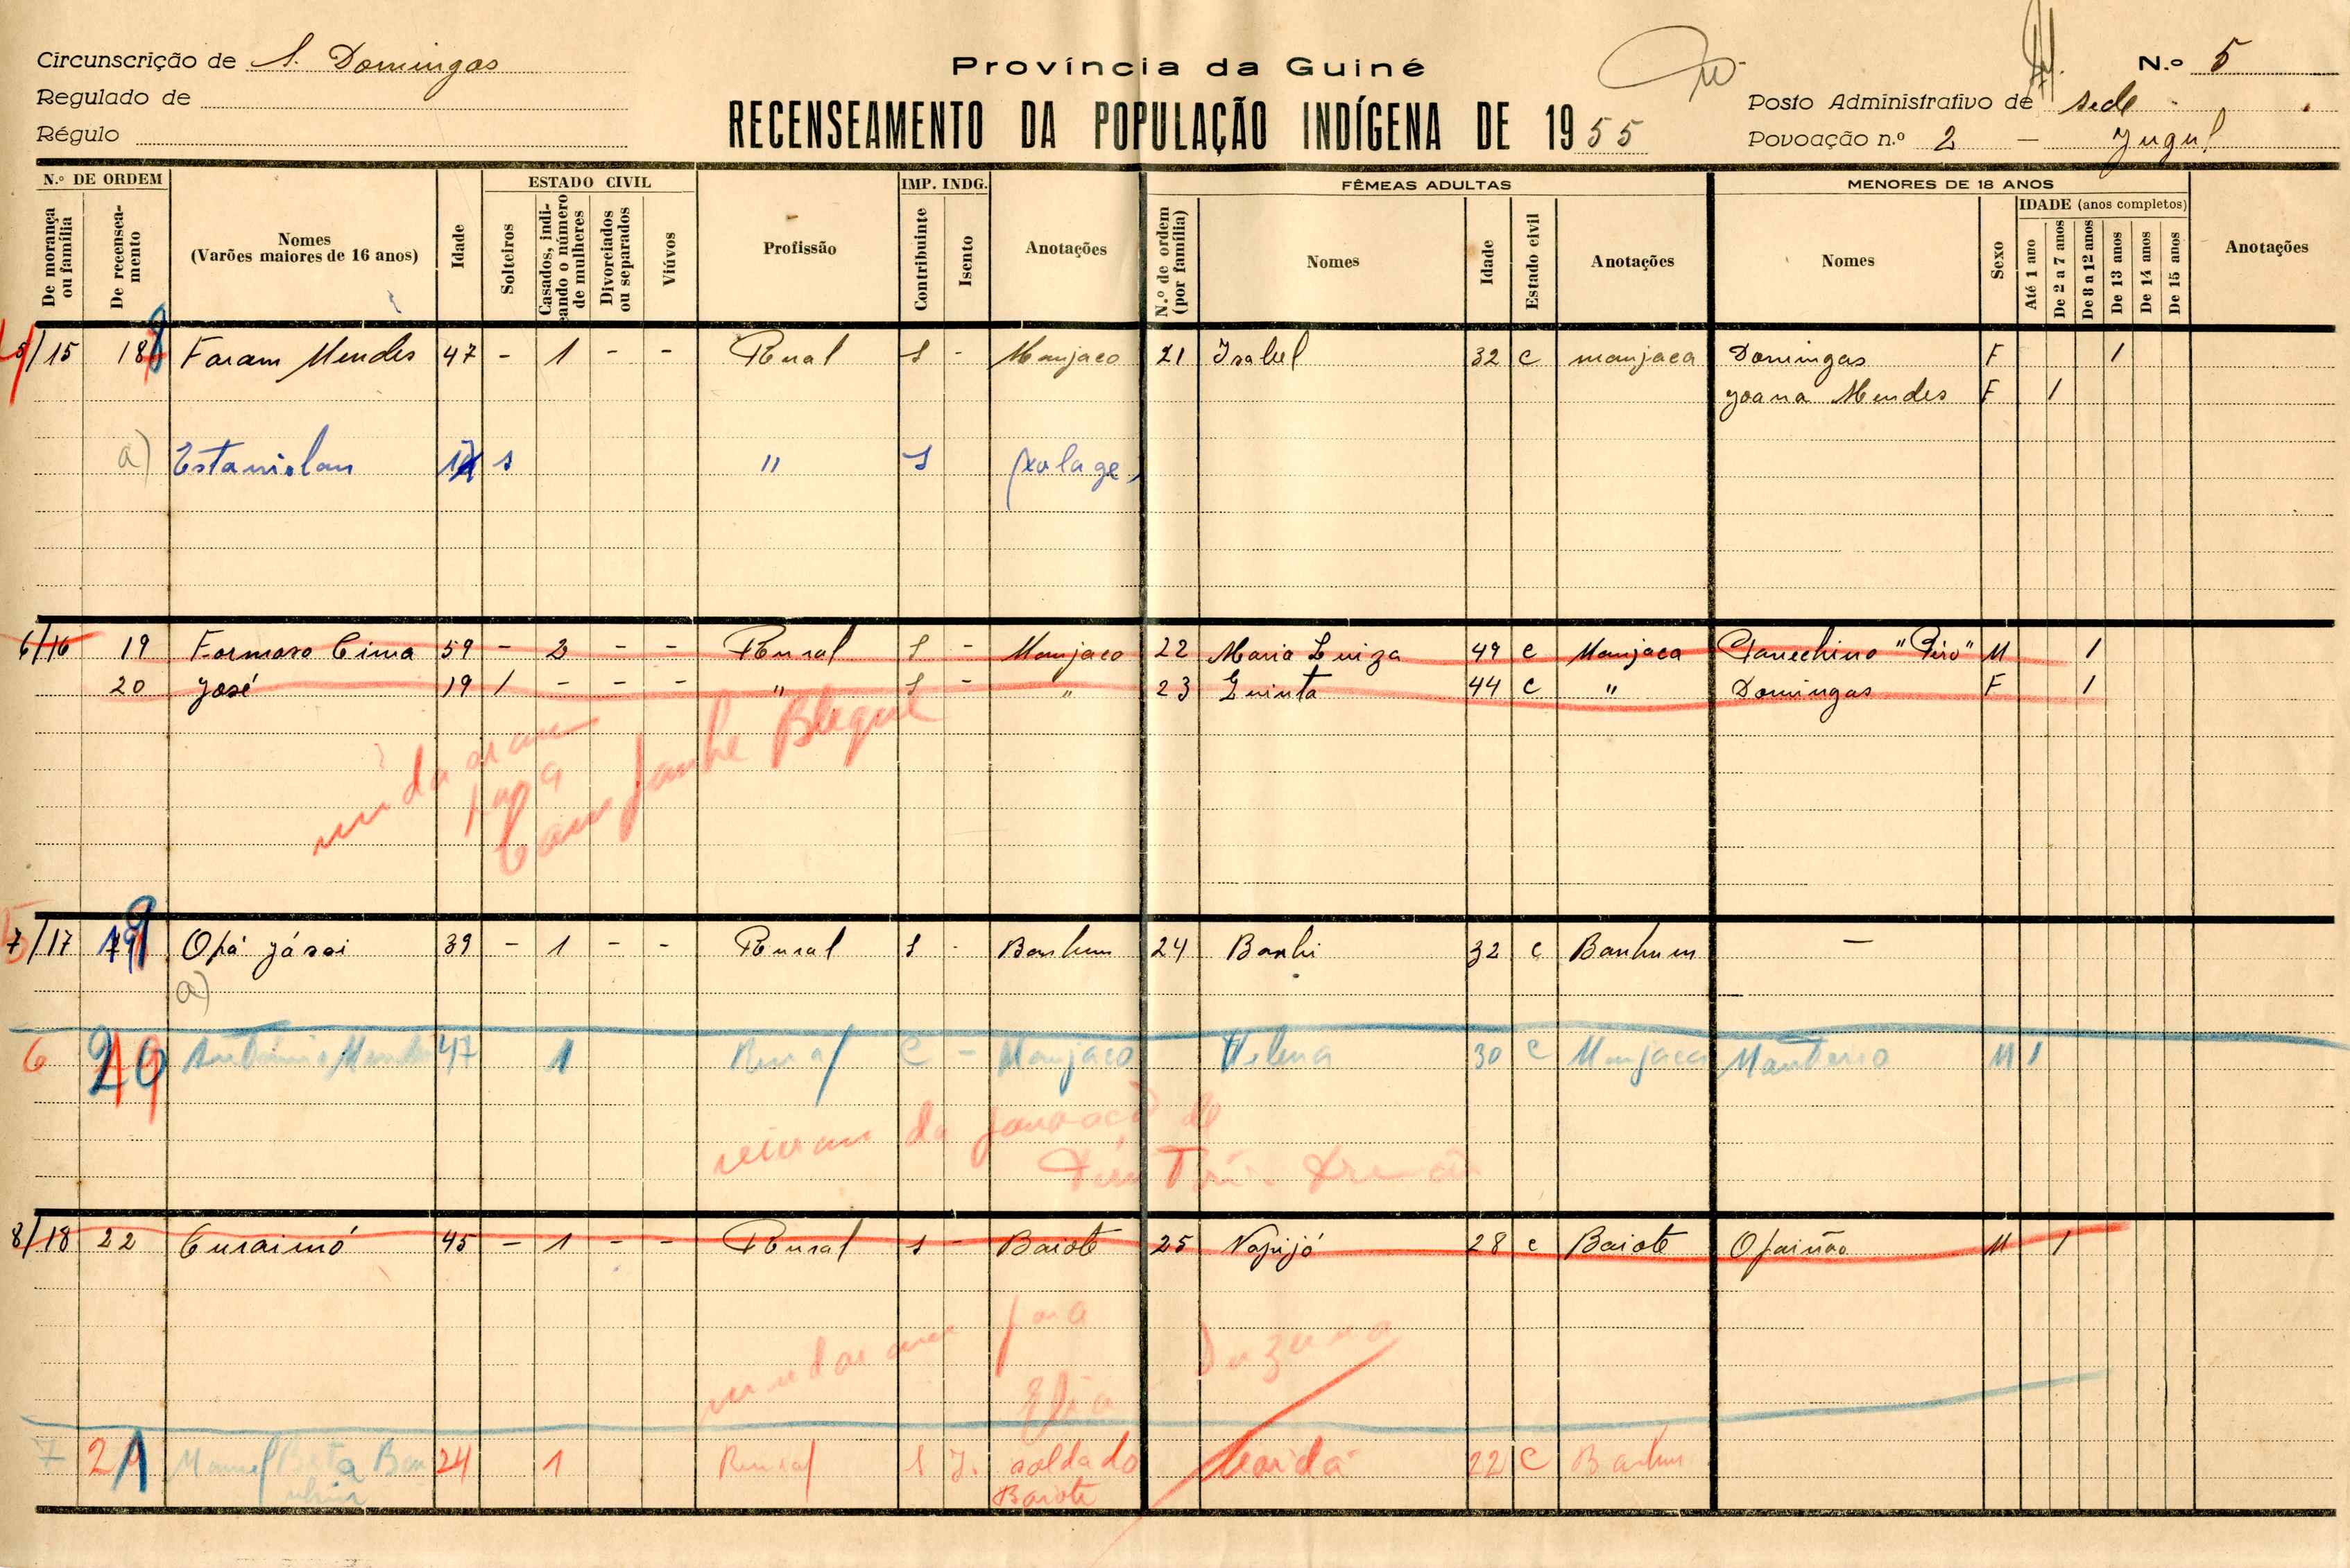 Circunscrição de S. Domingos
Regulado de
Régulo
Província da Guiné
RECENSEAMENTO DA POPULAÇÃO INDÍGENA DE 1955
N.º 5
Posto Administrativo de sede
Povoação n.º 2 - Jugul
N.º DE ORDEM
De morança ou família
De recenseamento
Nomes
(Varões maiores de 16 anos)
Idade
ESTADO CIVIL
Solteiros
Casados, indicando o número de mulheres
Divorciados ou separados
Viúvos
Profissão
IMP. INDG.
Contribuinte
Isento
Anotações
FÊMEAS ADULTAS
N.º de ordem (por família)
Nomes
Idade
Estado civil
Anotações
MENORES DE 18 ANOS
Nomes
Sexo
IDADE (anos completos)
Até 1 ano
De 2 a 7 anos
De 8 a 12 anos
De 13 anos
De 14 anos
De 15 anos
Anotações
5/15 18 Faram Mendes 47 - 1 - - Rural S - Manjaco 21 Isabel 32 C manjaca Domingas F 1
Joana Mendes F 1
a) Estanislau s " S
6/16 19 Formoso Cima 59 - 2 - - Rural S - Manjaco 22 Maria Luiza 49 C Manjaca M 1
20 José 19 1 - - - " S - " 23 Quinta 44 C " Domingas F 1
mudaram
para
Blequel
7/17 19 39 - 1 - - Rural S - Banhum 24 Banhi 32 C Banhum -
a)
6 20 António Mendes 47 1 Rural C - Manjaco Helena 30 C Manjaca M 1
vieram da povoação de
8/18 22 Curaimó 45 - 1 - - Rural S - Baiote 25 Napijó 28 C Baiote M 1
mudaram para
Elia
7 21 Manuel 24 1 Rural soldado 22 C
Baiote